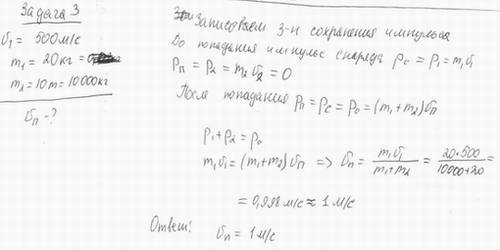 Задача 3
υ₁ = 500 м/с
m₁ = 20 кг =
m₂ = 10 т = 10000 кг
υп - ?
Записываем з-н сохранения импульса
До попадания импульс снаряда pс = p₁ = m₁υ₁
pп = p₂ = m₂ υ₂ = 0
После попадания pп = pс = p₀ = (m₁ + m₂) υп
p₁ + p₂ = p₀
m₁υ₁ = (m₁ + m₂) υп => υп = m₁υ₁ / (m₁ + m₂) = 20·500 / (10000 + 20) =
= 0,998 м/с ≈ 1 м/с
Ответ: υп = 1 м/с